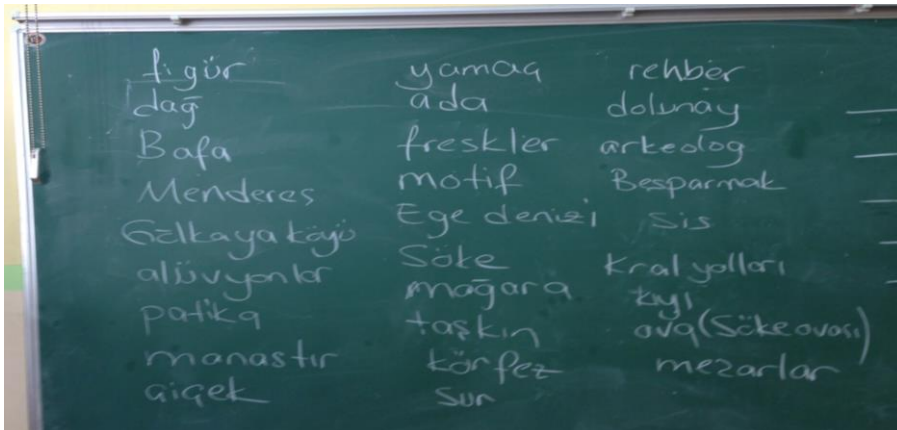 figür
dağ
Bafa
Menderes
Gölkaya köyü
alüvyonlar
patika
manastır
çiçek
yamaç
ada
freskler
motif
Ege denizi
Söke
mağara
taşkın
körfez
sur
rehber
dolunay
arkeolog
Beşparmak
sis
Kral yolları
kıyı
ova (Söke ovası)
mezarlar